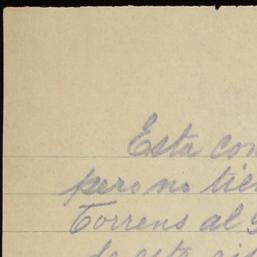 Esta con
pero no tien
Torrens al g
de este